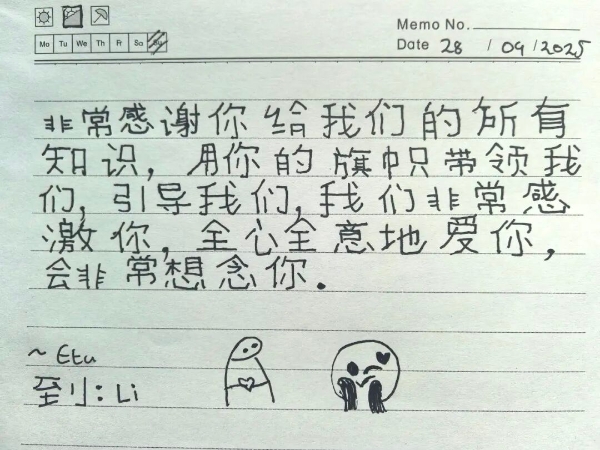 Memo No.
Mo Tu We Th Fr Sa Su
Date 28 / 09 / 2025
非常感谢你给我们的所有
知识，用你的旗帜带领我
们，引导我们，我们非常感
激你，全心全意地爱你，
会非常想念你．
~ Etu
至小：Li